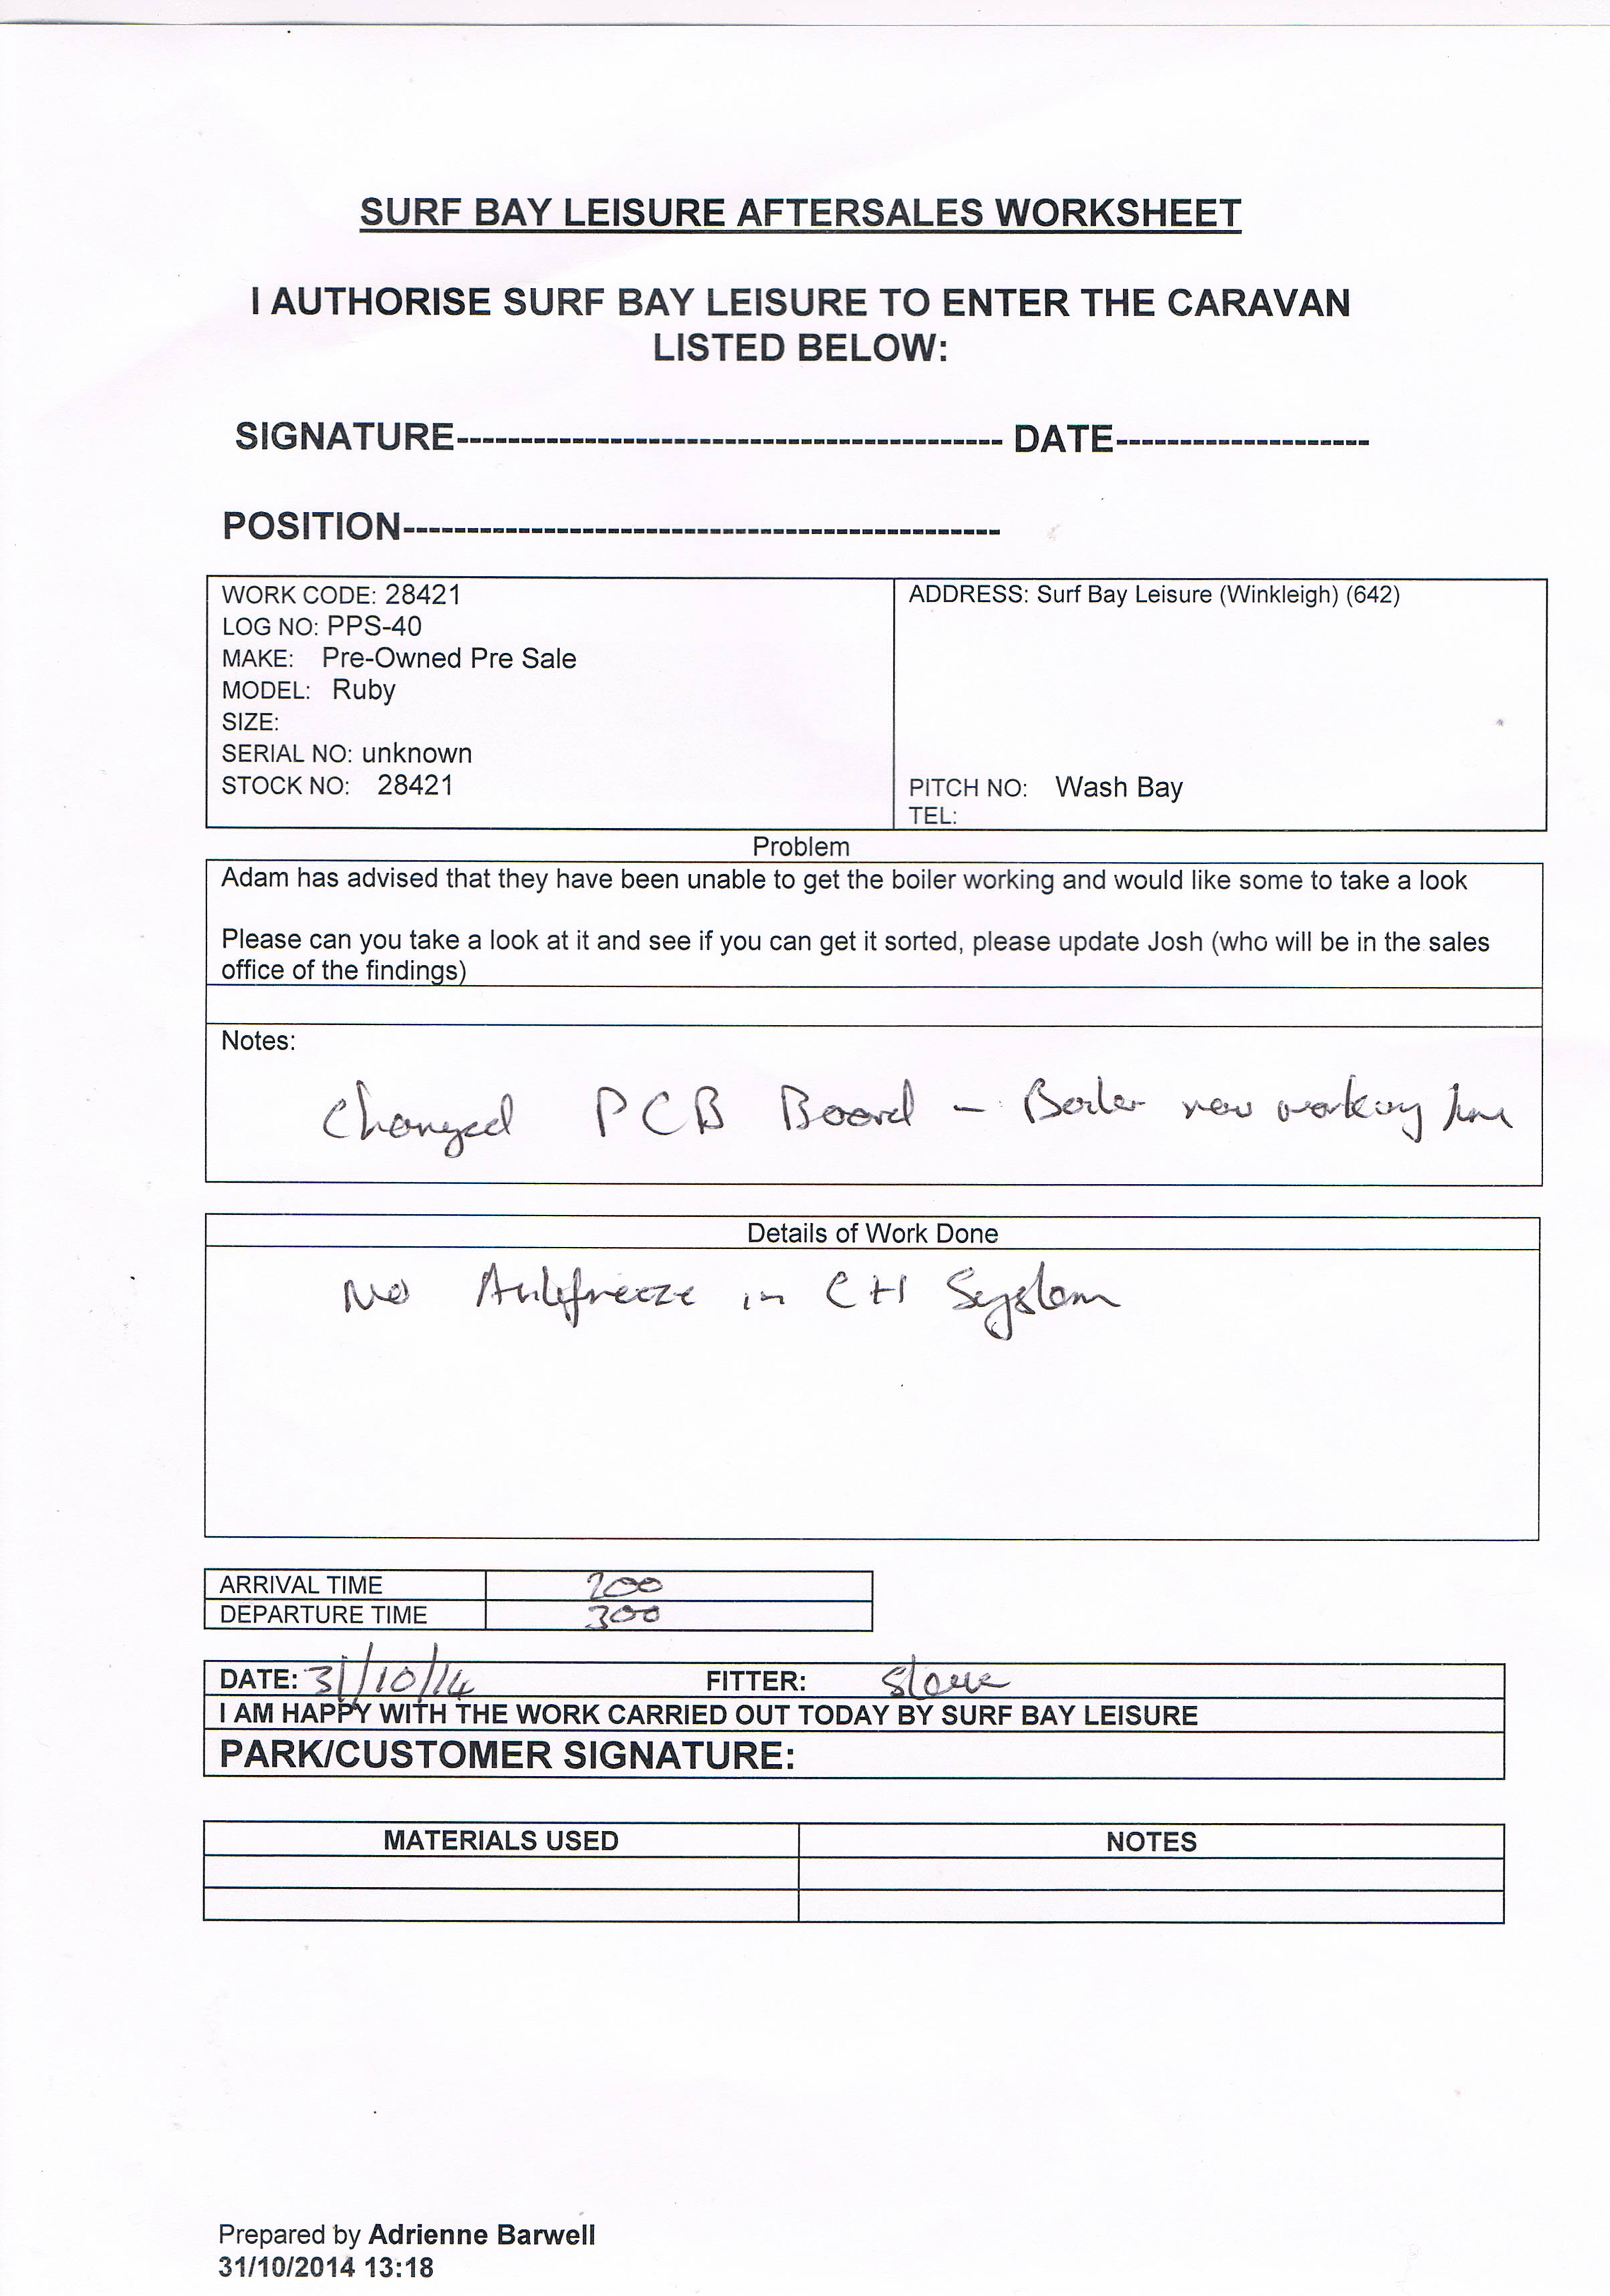 SURF BAY LEISURE AFTERSALES WORKSHEET
I AUTHORISE SURF BAY LEISURE TO ENTER THE CARAVAN
LISTED BELOW:
SIGNATURE------------------------------------------- DATE--------------------
POSITION-----------------------------------------------
WORK CODE: 28421
LOG NO: PPS-40
MAKE: Pre-Owned Pre Sale
MODEL: Ruby
SIZE:
SERIAL NO: unknown
STOCK NO: 28421
ADDRESS: Surf Bay Leisure (Winkleigh) (642)
PITCH NO: Wash Bay
TEL:
Problem
Adam has advised that they have been unable to get the boiler working and would like some to take a look
Please can you take a look at it and see if you can get it sorted, please update Josh (who will be in the sales
office of the findings)
Notes:
Changed PCB Board - Boiler now working fine
Details of Work Done
No Antifreeze in CH System
ARRIVAL TIME 200
DEPARTURE TIME 300
DATE: 31/10/14 FITTER: Steve
I AM HAPPY WITH THE WORK CARRIED OUT TODAY BY SURF BAY LEISURE
PARK/CUSTOMER SIGNATURE:
MATERIALS USED NOTES
Prepared by Adrienne Barwell
31/10/2014 13:18